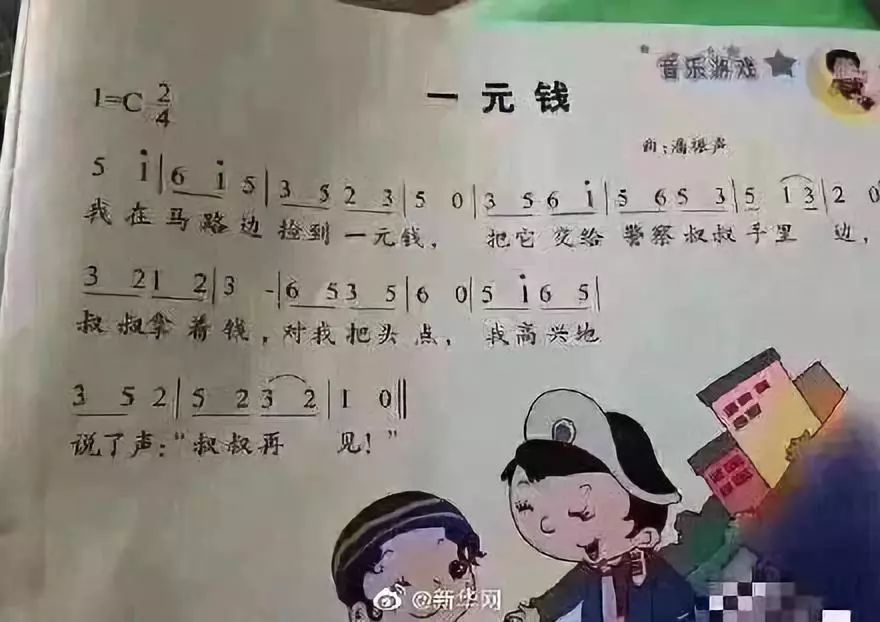 音乐游戏
一元钱
1=C 2/4
曲:潘振声
5 i|6 i 5|3 5 2 3|5 0|3 5 6 i|5 6 5 3|5 1 3|2 0
我在马路边捡到一元钱,把它交给警察叔叔手里边,
3 2 1 2|3 -|6 5 3 5|6 0|5 i 6 5|
叔叔拿着钱,对我把头点,我高兴地
3 5 2|5 2 3 2|1 0‖
说了声:“叔叔再见!”
@新华网